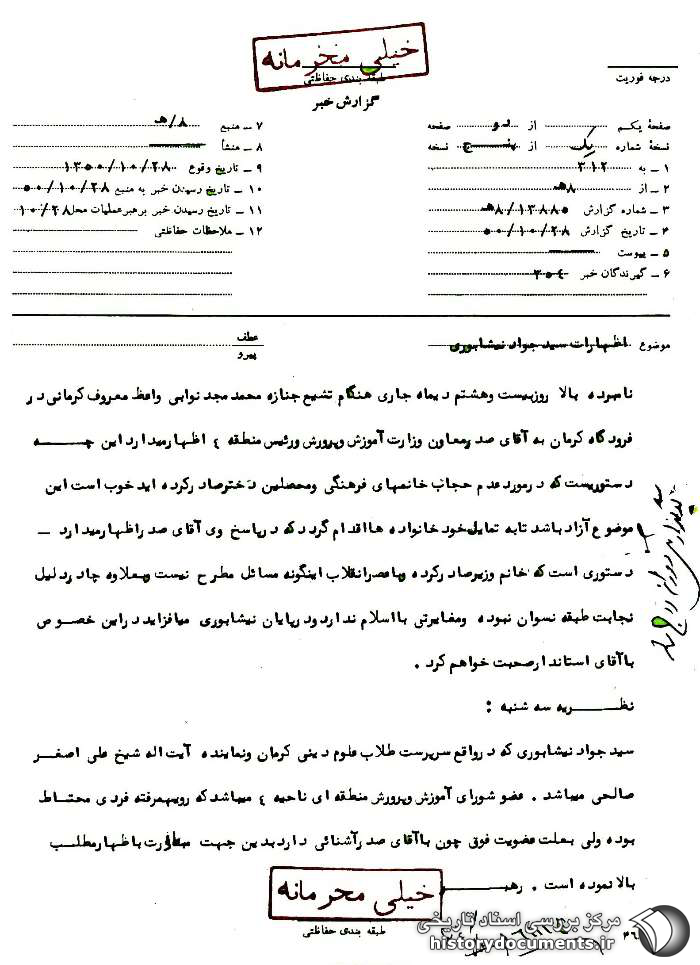 خیلی محرمانه
طبقه بندی حفاظتی
درجه فوریت
گزارش خبر
صفحهٔ یکم از دو صفحه
نسخهٔ شماره یک از پنج نسخه
۱ ـ به ۳۱۲
۲ ـ از ۸هـ
۳ ـ شماره گزارش ۸هـ/۱۳۸۸۵
۴ ـ تاریخ گزارش ۵۰/۱۰/۲۸
۵ ـ پیوست
۶ ـ گیرندگان خبر ۳۵۴
۷ ـ منبع ۸/هـ
۸ ـ منشأ
۹ ـ تاریخ وقوع ۱۳۵۰/۱۰/۲۸
۱۰ ـ تاریخ رسیدن خبر به منبع ۵۰/۱۰/۲۸
۱۱ ـ تاریخ رسیدن خبر برهبر عملیات محل ۱۰/۲۸
۱۲ ـ ملاحظات حفاظتی
موضوع اظهارات سید جواد نیشابوری
عطف
پیرو
نامبرده بالا روز بیست وهشتم دیماه جاری هنگام تشیع جنازه محمد مجد نوابی واعظ معروف کرمانی در
فرودگاه کرمان به آقای صدر معاون وزارت آموزش وپرورش ورئیس منطقه ٤ اظهار میدارد این چه
دستوریست که در مورد عدم حجاب خانمهای فرهنگی ومحصلین دختر صادر کرده اید خوب است این
موضوع آزاد باشد تا به تمایل خود خانواده ها اقدام گردد که در پاسخ وی آقای صدر اظهار میدارد ـ
دستوری است که خانم وزیر صادر کرده و با عصر انقلاب اینگونه مسائل مطرح نیست و بعلاوه چادر دلیل
نجابت طبقه نسوان نبوده ومغایرتی با اسلام ندارد ودر پایان نیشابوری میافزاید در این خصوص
با آقای استاندار صحبت خواهم کرد .
نظریه سه شنبه :
سید جواد نیشابوری که در واقع سرپرست طلاب علوم دینی کرمان ونماینده آیت اله شیخ علی اصغر
صالحی میباشد . عضو شورای آموزش وپرورش منطقه ای ناحیه ٤ میباشد که رویهمرفته فردی محتاط
بوده ولی بعلت عضویت فوق چون با آقای صدر آشنائی دارد بدین جهت مبادرت باظهار مطلب
بالا نموده است . رهبر
خیلی محرمانه
طبقه بندی حفاظتی
مرکز بررسی اسناد تاریخی
historydocuments.ir